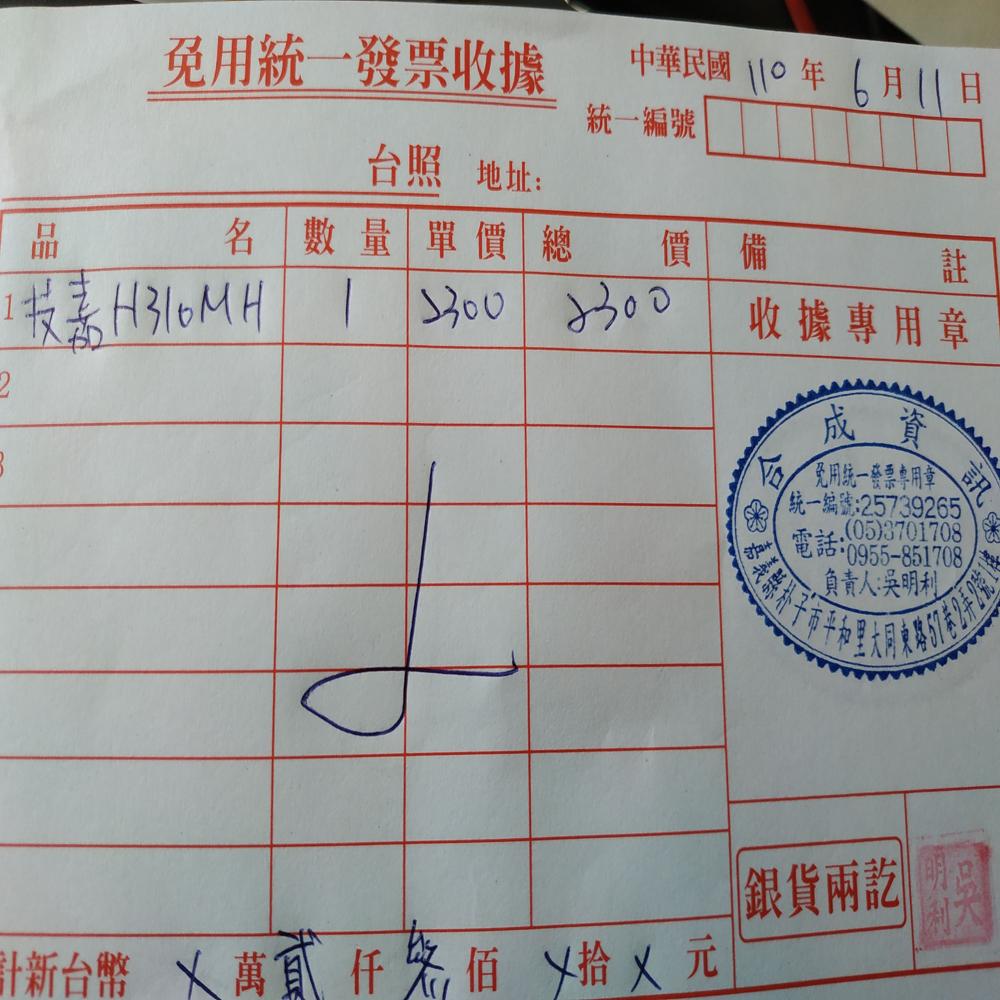 免用統一發票收據
中華民國 110 年 6 月 11 日
統一編號
台照 地址:
品名 數量 單價 總價 備註
1 技嘉H310MH 1 2300 2300 收據專用章
2
3
合成資訊
免用統一發票專用章
統一編號:25739265
電話:(05)3701708
0955-851708
負責人:吳明利
嘉義縣朴子市平和里大同東路57巷2弄2號
銀貨兩訖
吳明利
計新台幣 X 萬 貳 仟 叁 佰 X 拾 X 元